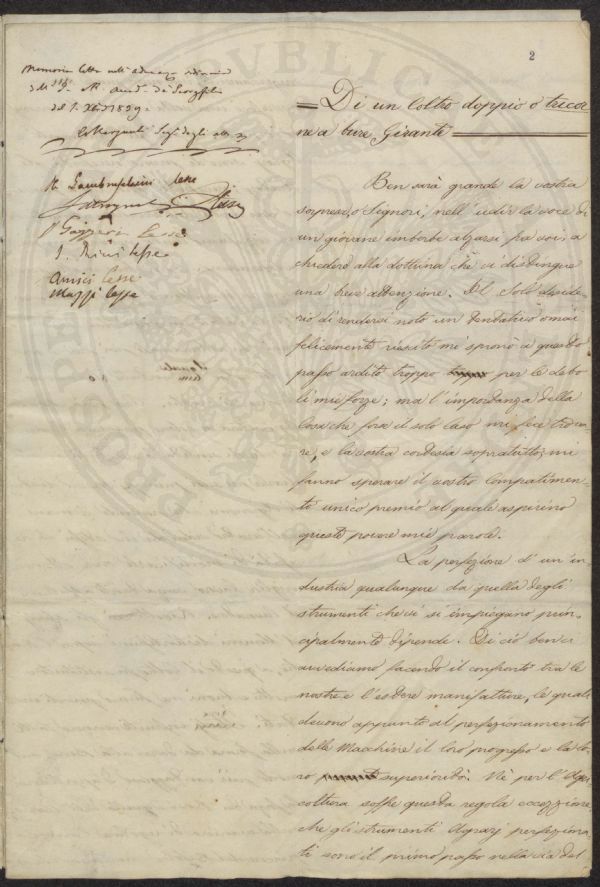 2
Memoria letta nell' adunanza ordinaria
dell' I. e R. Accad. dei Georgofili
del 1. 1829.
R. Lambruschini lesse
lesse
lesse
Amici lesse
Mazzi lesse
Di un Coltro doppio o tricor
ne a bure Girante
Ben sarà grande la vostra
sorpresa, o Signori, nell' udir la voce di
un giovane imberbe alzarsi fra voi, a
chieder alla dottrina che vi distingue
una breve attenzione. Il Solo deside-
rio di rendervi noto un tentativo omai
felicemente riescito mi spronò a questo
passo ardito troppo per le debo
li mie forze; ma l' importanza della
Cosa che forse il solo caso mi fece trova-
re, e la vostra cortesia sopratutto; mi
fanno sperare il vostro Compatimen-
to unico premio al quale aspirino
queste povere mie parole.
La perfezione d' un in-
dustria qualunque da quella degli
strumenti che vi si impiegano prin-
cipalmente dipende. Di ciò ben ci
avvediamo facendo il confronto tra le
nostre e l' estere manifatture, le quali
devono appunto al perfezionamento
delle Macchine il loro progresso e la lo-
ro superiorità. Nè per l' Agri
coltura soffre questa regola eccezzione
che gli strumenti Agrarj perfeziona-
ti sono il primo passo nella via del